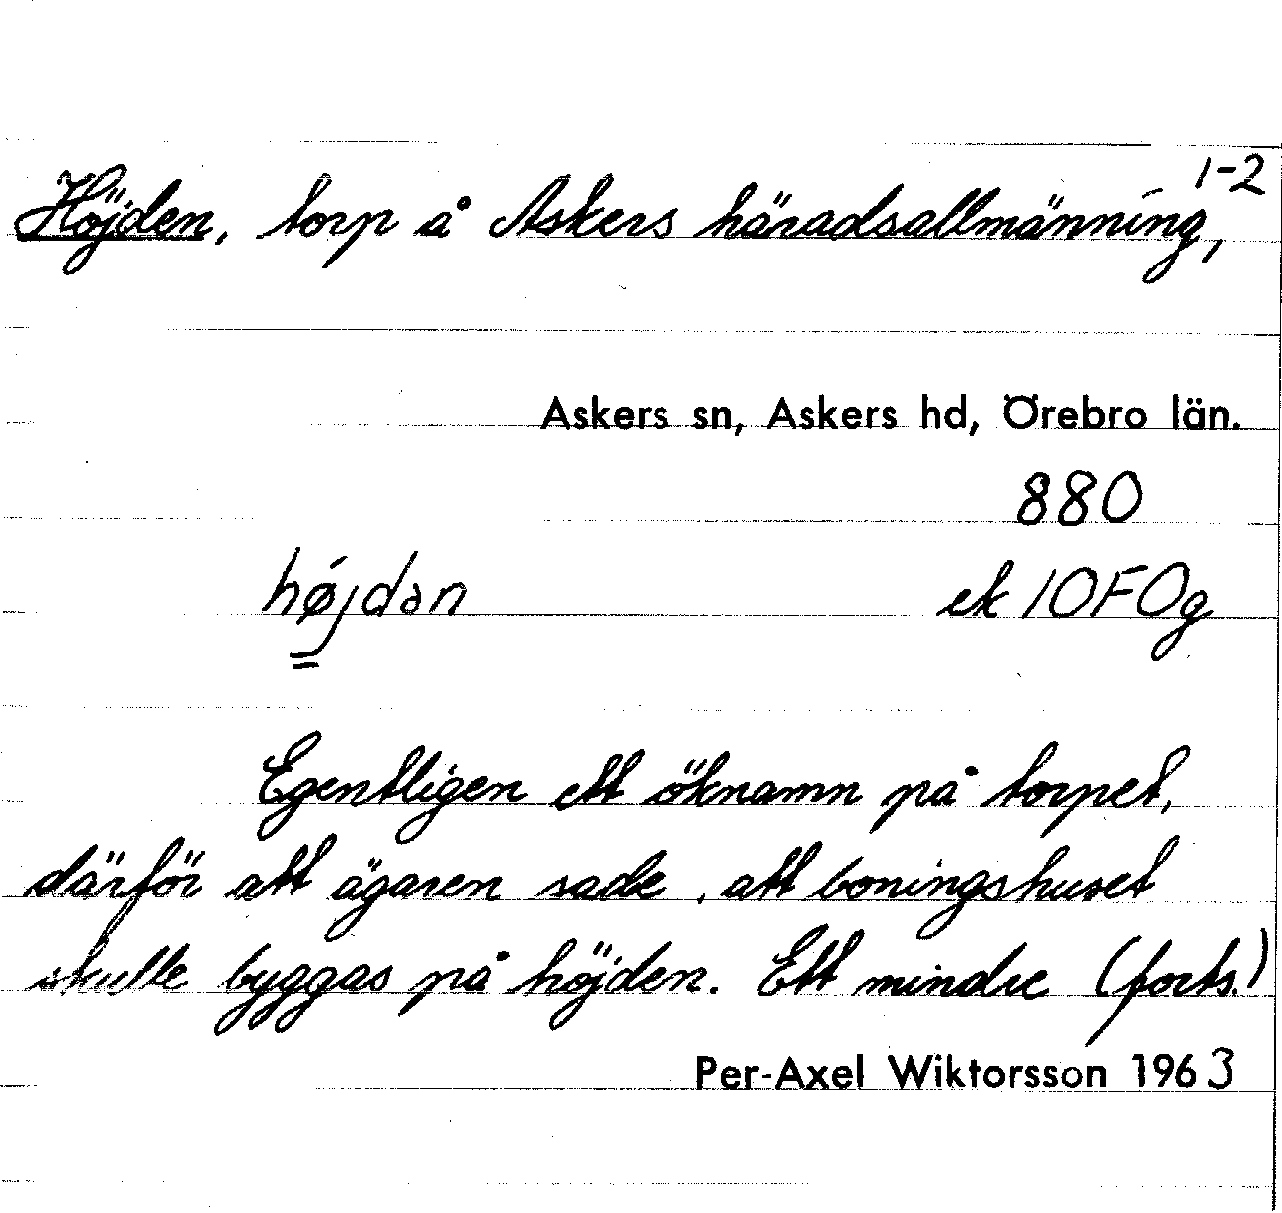 1-2
Höjden, torp å Askers häradsallmänning,
Askers sn, Askers hd, Örebro län.
880
højdan ek 10F0g
Egentligen ett öknamn på torpet,
därför att ägaren sade, att boningshuset
skulle byggas på höjden. Ett mindre (forts.)
Per-Axel Wiktorsson 1963